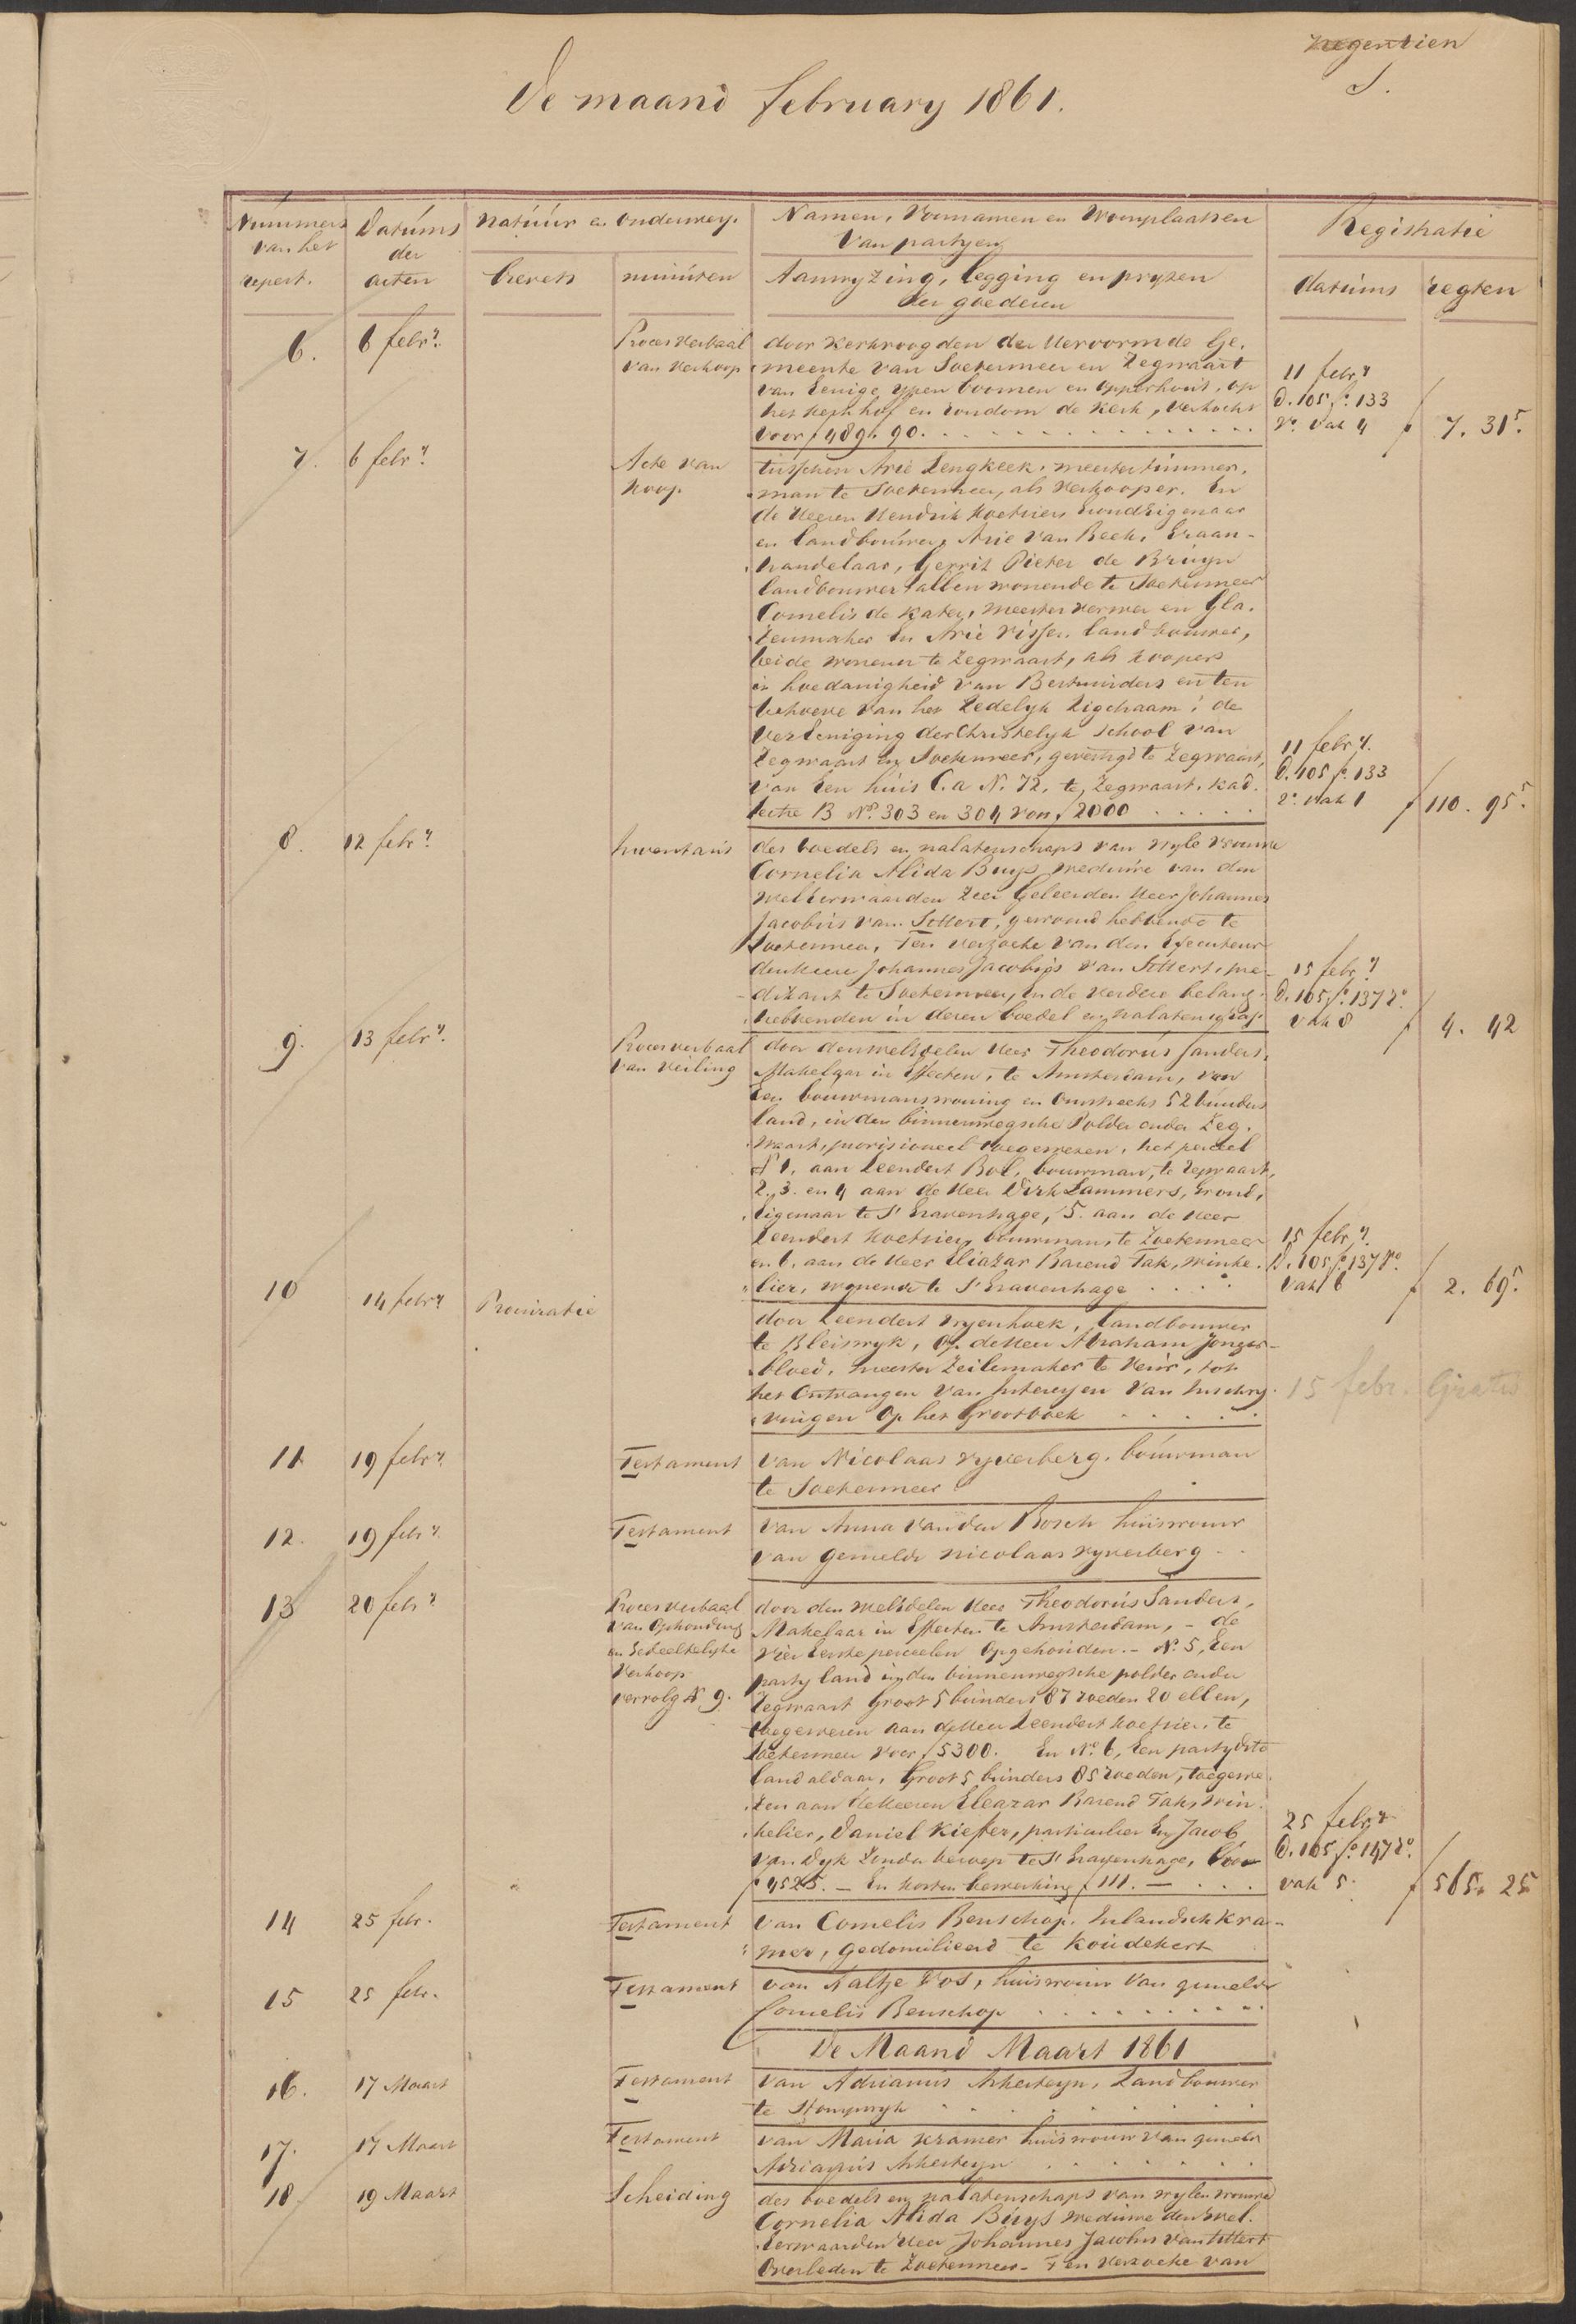 negentien
De maand february 1861.
Nummers van het repert.
Datums der acten
Natuur en Onderwerp.
brevets
minuten
Namen, Voornamen en Woonplaatsen
van partyen
Aanwyzing, legging en pryzen
der goederen
Registratie
datums
regten
6.
6 febry.
Proces Verbaal
van Verkoop
door Kerkvoogden der Hervormde Ge-
meente van Soetermeer en Zegwaart
van Eenige ypen boomen en opperhout, op
het kerkhof en rondom de kerk, verkocht
voor f 489. 90.
11 febry
D. 105 fo. 133
ro. Vak 4
f 7. 31⁵.
7.
6 febry.
Acte van
Koop.
tusschen Arie Lengkeek, meester timmer-
man te Soetermeer, als verkooper. En
de Heeren Hendrik Koetsier, Grondeigenaar
en landbouwer, Arie van Beek, Graan-
handelaar, Gerrit Pieter de Bruyn
landbouwer allen wonende te Soetermeer
Cornelis de Kater, meester verwer en Gla-
zenmaker En Arie Visser, landbouwer,
beide wonende te Zegwaart, als koopers
in hoedanigheid van Bestuurders en ten
behoeve van het Zedelyk Ligchaam: de
Vereeniging der Christelyk School van
Zegwaart en Soetermeer, gevestigd te Zegwaart,
van Een huis C.a No. 72, te Zegwaart, Kad.
Sectie B No. 303 en 304 voor f 2000
11 febry.
D. 105 fo. 133
ro. vak 1
f 110. 95⁵.
8.
12 febry.
Inventaris
des boedels en nalatenschaps van wyle vrouwe
Cornelia Alida Buys, weduwe van den
WelEerwaarden Zeer Geleerden Heer Johannes
Jacobus van Sittert, gewoond hebbende te
Soetermeer, Ten verzoeke van den Executeur
den Heere Johannes Jacobus van Sittert, pre-
dikant te Soetermeer, En de verdere belang-
hebbenden in deren boedel en nalatenschap
15 febry
D. 105 fo. 137 ro.
vak 8
f 4. 42
9.
13 febry.
Proces verbaal
van veiling
door den welEdelen Heer Theodorus Sanders,
Makelaar in Effecten, te Amsterdam, van
Een bouwmanswoning en Omstreeks 52 bunders
land, in den binnenwegsche Polder onder Zeg-
waart, provisioneel toegewezen, het perceel
No 1, aan Leendert Bol, bouwman, te Zegwaart,
2, 3. en 4 aan de Heer Dirk Lammers, Grond-
Eigenaar te S' Gravenhage, 5. aan de Heer
Leendert Koetsier, bouwman, te Zoetermeer
en 6. aan de Heer Eliazar Barend Tak, winke-
lier, wonende te S' Gravenhage
15 febry.
D. 105 fo. 137 Vo.
vak 6
f 2. 69⁵.
10
14 febry
Procuratie
door Leendert Wyenhoek, Landbouwer
te Bleiswyk, Op de Heer Abraham Jonger-
bloed, meester Zeilemaker te Veur, tot
het Ontvangen van Interessen van Inschry-
vingen Op het Grootboek
15 febr. Gratis
11.
19 febry.
Testament
van Nicolaas Vyverberg, bouwman
te Soetermeer
12.
19 febry.
Testament
van Anna van den Bosch huisvrouw
van gemelde Nicolaas Vyverberg
13
20 febry.
Proces verbaal
van Ophouding
en Gedeeltelyke
Verkoop
vervolg No. 9.
door den WelEdelen Heer Theodorus Sanders,
Makelaar in Effecten te Amsterdam, - de
vier Eerste perceelen Opgehouden. - No. 5, Een
party land in den binnenwegsche polder onder
Zegwaart Groot 5 bunders 87 roeden 20 ellen,
toegewezen aan de Heer Leendert Koetsier, te
Soetermeer voor f 5300. En No. 6, Een party dito
land aldaar, Groot 5 bunders 85 roeden, toegewe-
zen aan de Heeren Eleazar Barend Tak, win-
kelier, Daniel Kieffer, particulier En Jacob
van Dyk Zonder beroep te S' Gravenhage, Voor
f 4525. - En kosten bewerking f 111. -
25 febry
D. 105 fo. 147 ro.
vak 5.
f 565. 25
14
25 febr.
Testament
van Cornelis Benschop, Inlandsch kra-
mer, gedomilieerd te Koudekerk
15
25 febr.
Testament
van Aaltje Vos, huisvrouw van gemelde
Cornelis Benschop
De Maand Maart 1861
16.
17 Maart
Testament
van Adrianus Arkesteyn, Landbouwer
te Stompwyk
17.
17 Maart
Testament
van Maria Kramer huisvrouw van gemelde
Adrianus Arkesteyn
18
19 Maart
Scheiding
des boedels en nalatenschaps van wylen vrouwe
Cornelia Alida Buys weduwe den Wel-
Eerwaarden Heer Johannes Jacobus van Sittert
Overleden te Zoetermeer - Ten Verzoeke van